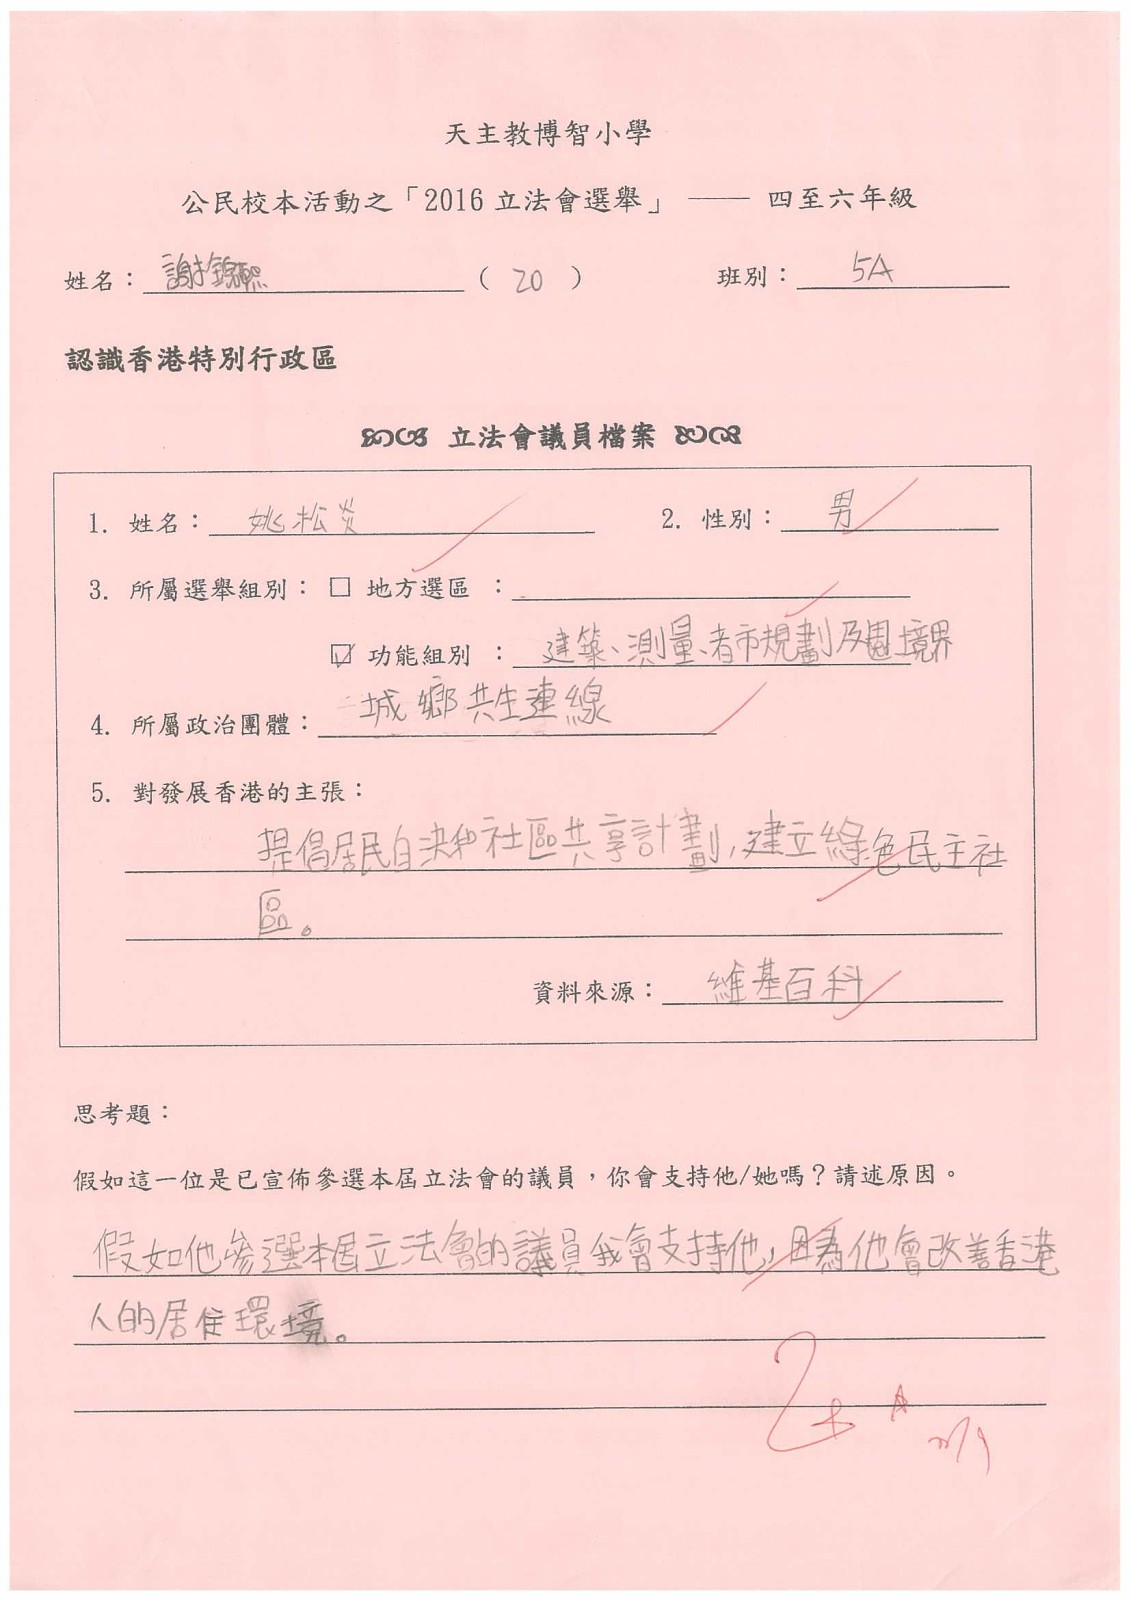 天主教博智小學
公民校本活動之「2016 立法會選舉」 —— 四至六年級
姓名：謝錦熙 （ 20 ） 班別：5A
認識香港特別行政區
立法會議員檔案
1. 姓名：姚松炎 2. 性別：男
3. 所屬選舉組別：□ 地方選區 ：
☑ 功能組別 ：建築、測量、都市規劃及園境界
4. 所屬政治團體：城鄉共生連線
5. 對發展香港的主張：
提倡居民自決和社區共享計劃，建立綠色民主社
區。
資料來源：維基百科
思考題：
假如這一位是已宣佈參選本屆立法會的議員，你會支持他/她嗎？請述原因。
假如他參選本屆立法會的議員我會支持他，因為他會改善香港
人的居住環境。
A